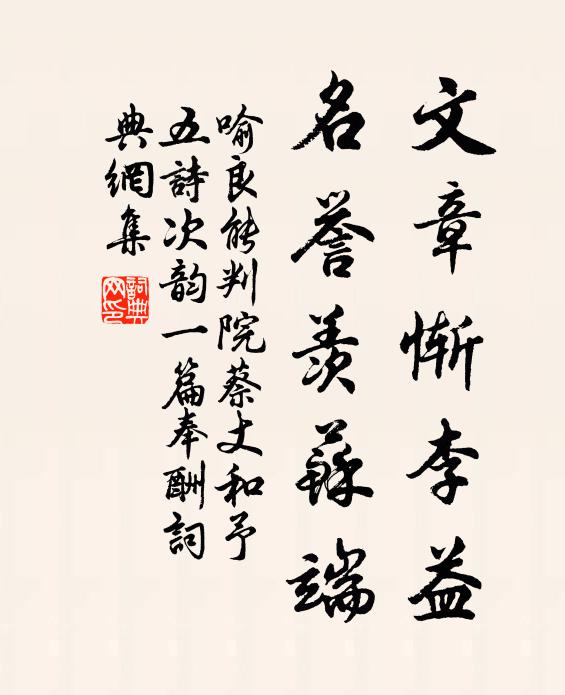 文章慚李益
名譽羨蘇端
喻良能判院蔡丈和予
五詩次韵一篇奉酬詞
典網集
詞典網印